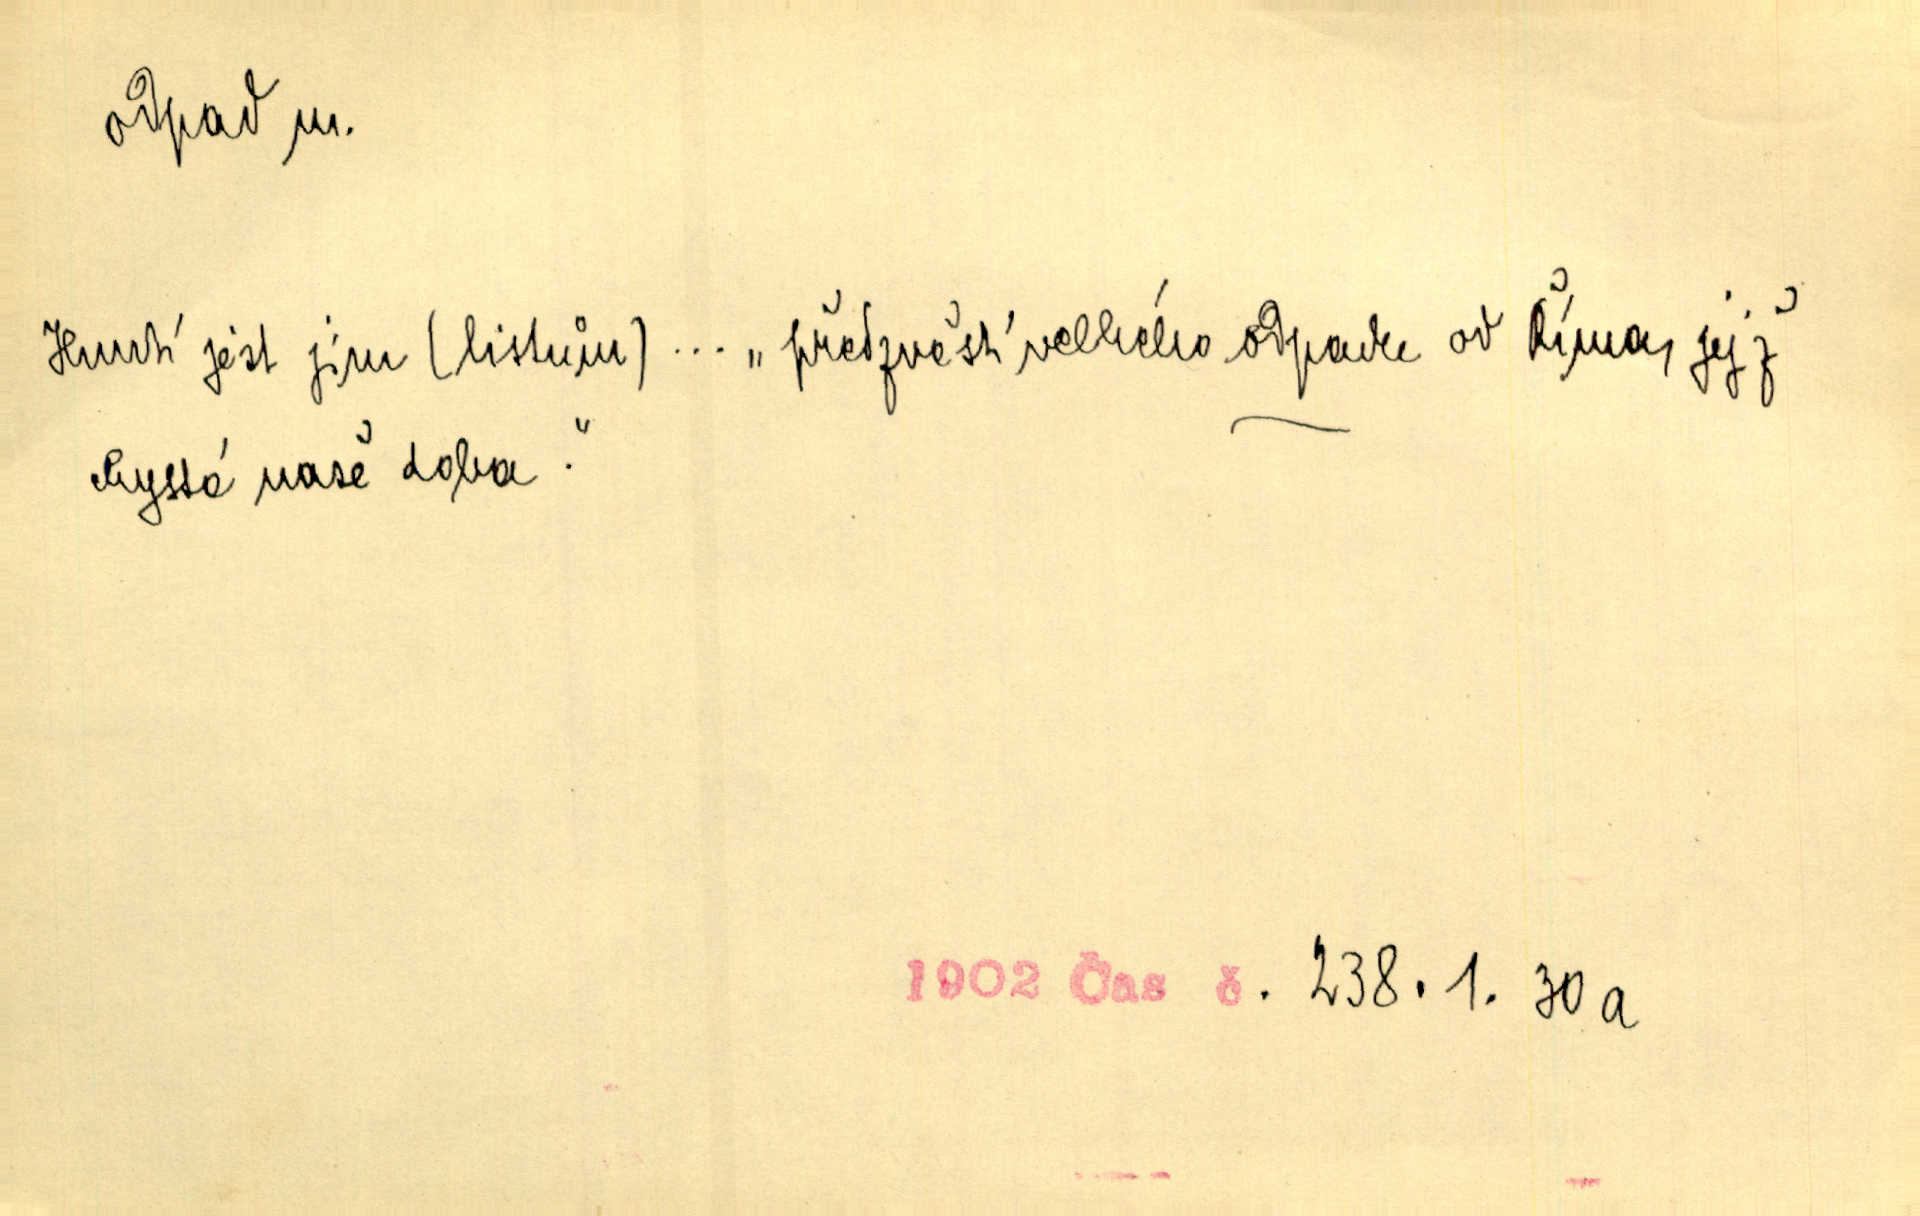 odpad m.
Hnutí jest jim (listům) ... „předzvěstí velkého odpadu od Říma, jejž
chystá naše doba."
1902 Čas č. 238. 1. 30 a